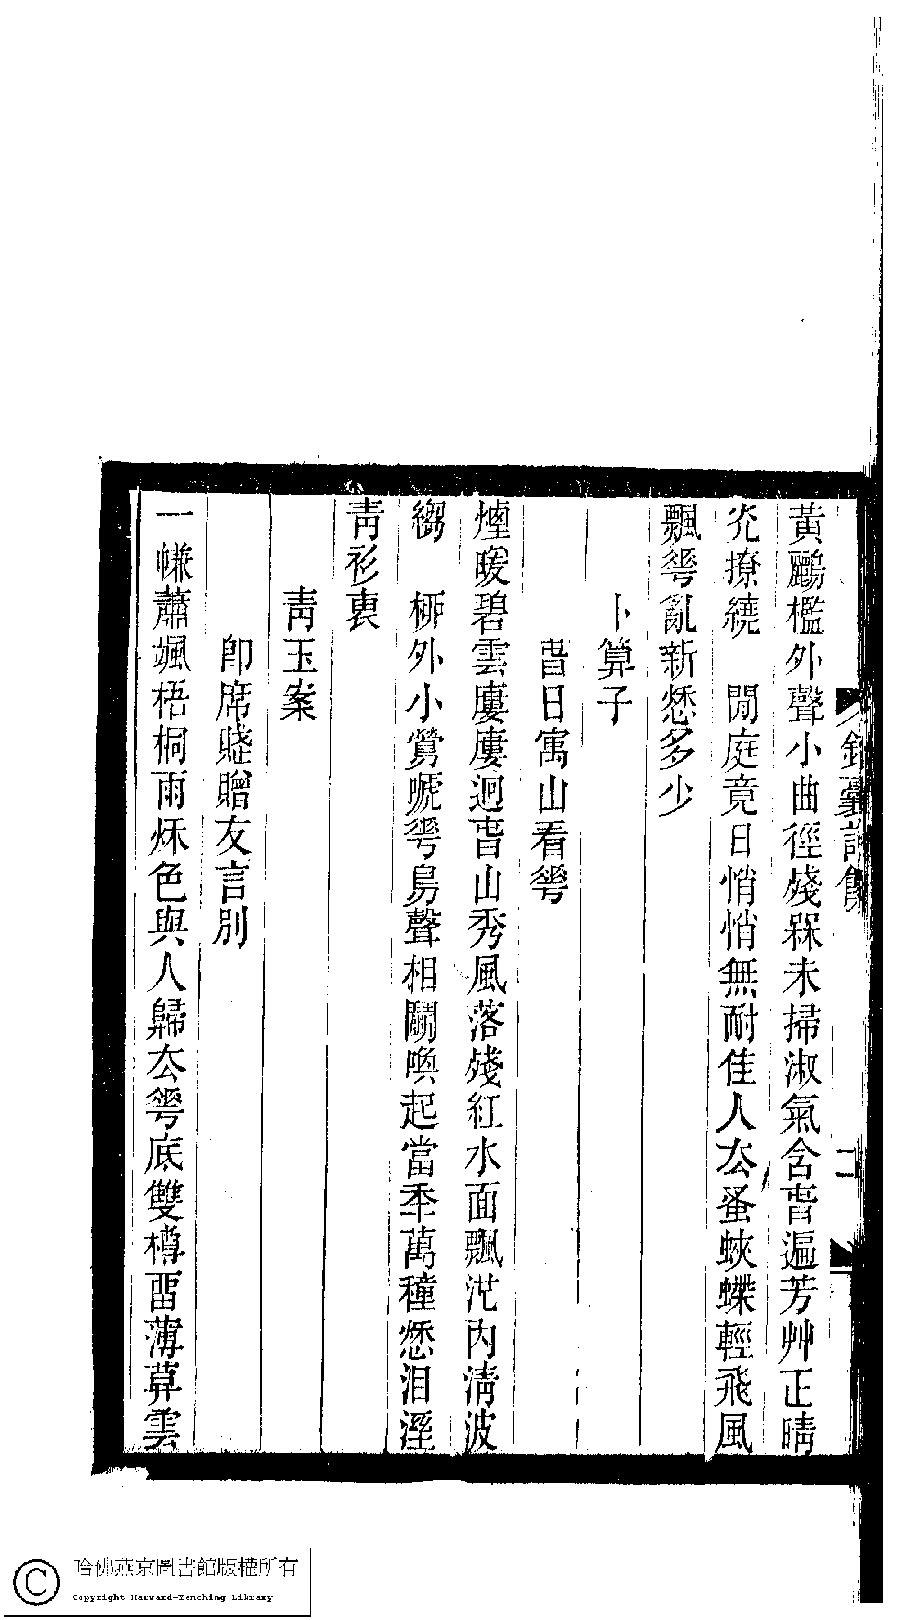 黃鸝檻外聲小曲徑殘槑未掃淑氣含旾遍芳艸正晴
光撩繞　閒庭竟日悄悄無耐佳人厺蚤蛺蝶輕飛風
飄蕚亂新愁多少
卜算子
昔日寓山看蕚
煙暖碧雲廔廔迥旾山秀風落殘紅水面飄沉內淸波
縐　桺外小鶯嗁蕚鳥聲相鬭喚起當秊萬種愁泪溼
靑衫褎
靑玉案
卽席賤贈友言別
一㡘蕭颯梧桐雨秌色與人歸厺蕚底雙樽畱薄莫雲
二
哈佛燕京圖書館版權所有
Copyright Harvard-Yenching Library